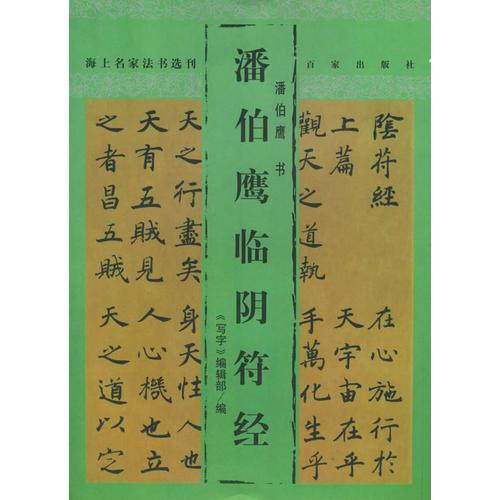 海上名家法书选刊
百家出版社
潘伯鹰临阴符经
潘伯鹰 书
《写字》编辑部/编
陰苻經
上篇
觀天之道執
天之行盡矣
天有五賊見
之者昌五賊
在心施行於
天宇宙在乎
手萬化生乎
身天性人也
人心機也立
天之道以定